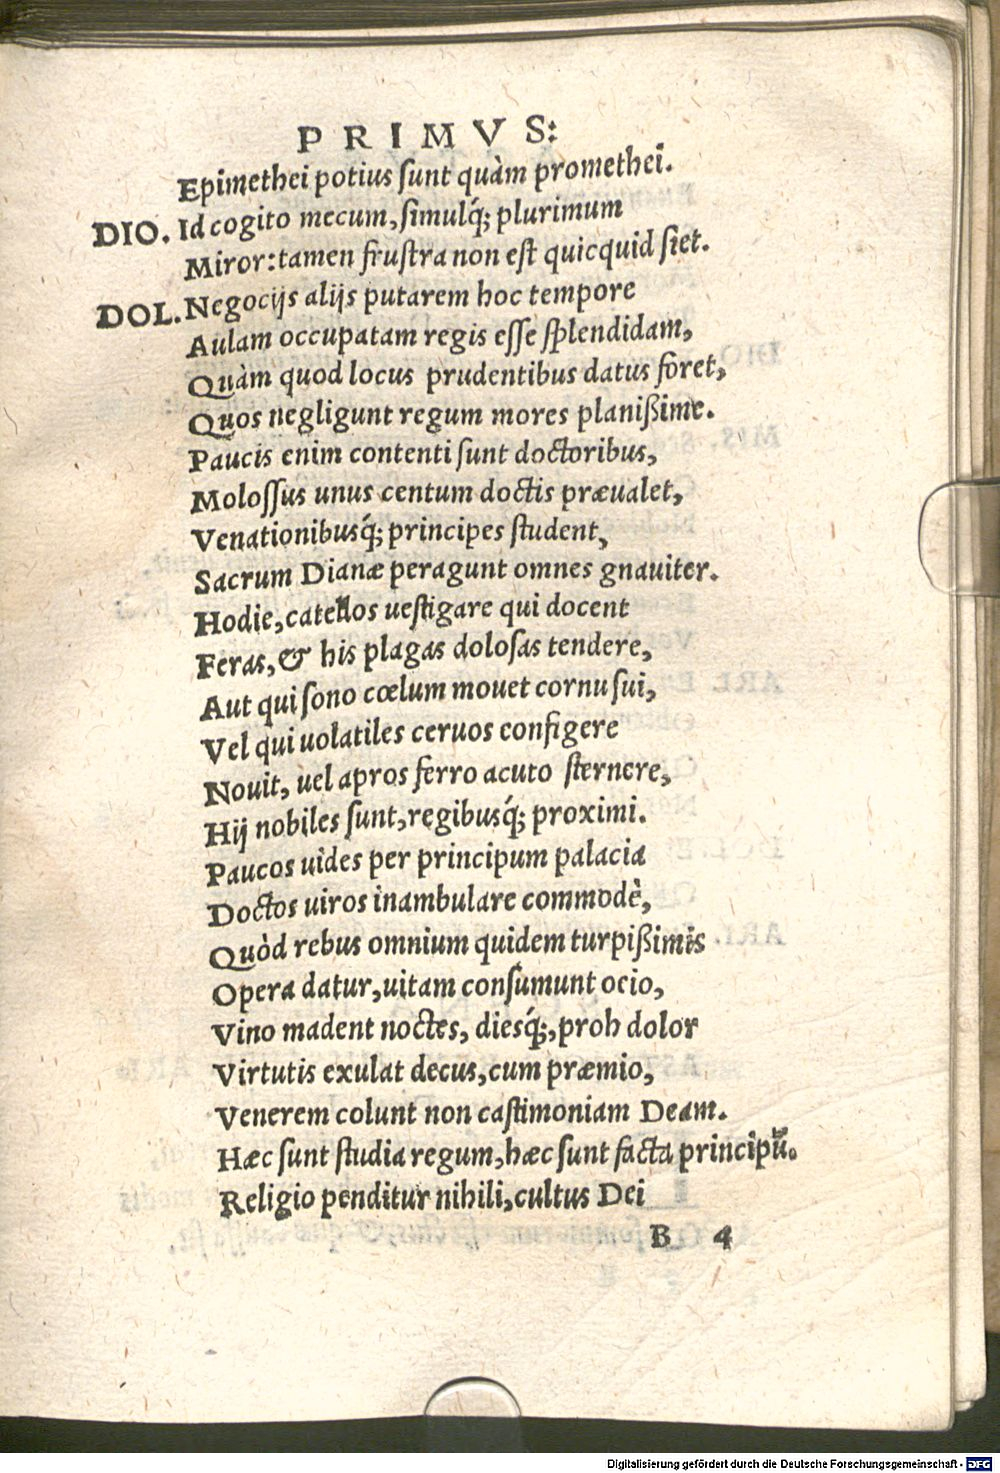 PRIMVS:
Epimethei potius sunt quàm promethei.
DIO. Id cogito mecum, simulq́; plurimum
Miror: tamen frustra non est quicquid siet.
DOL. Negocijs alijs putarem hoc tempore
Aulam occupatam regis esse splendidam,
Quàm quod locus prudentibus datus foret,
Quos negligunt regum mores planißime.
Paucis enim contenti sunt doctoribus,
Molossus unus centum doctis præualet,
Venationibusq́; principes student,
Sacrum Dianæ peragunt omnes gnauiter.
Hodie, catellos uestigare qui docent
Feras, & his plagas dolosas tendere,
Aut qui sono cœlum mouet cornu sui,
Vel qui uolatiles ceruos configere
Nouit, uel apros ferro acuto sternere,
Hij nobiles sunt, regibusq́; proximi.
Paucos uides per principum palacia
Doctos uiros inambulare commodè,
Quòd rebus omnium quidem turpißimis
Opera datur, uitam consumunt ocio,
Vino madent noctes, diesq́;, proh dolor
Virtutis exulat decus, cum præmio,
Venerem colunt non castimoniam Deam.
Hæc sunt studia regum, hæc sunt facta principũ.
Religio penditur nihili, cultus Dei
B 4
Digitalisierung gefördert durch die Deutsche Forschungsgemeinschaft - DFG